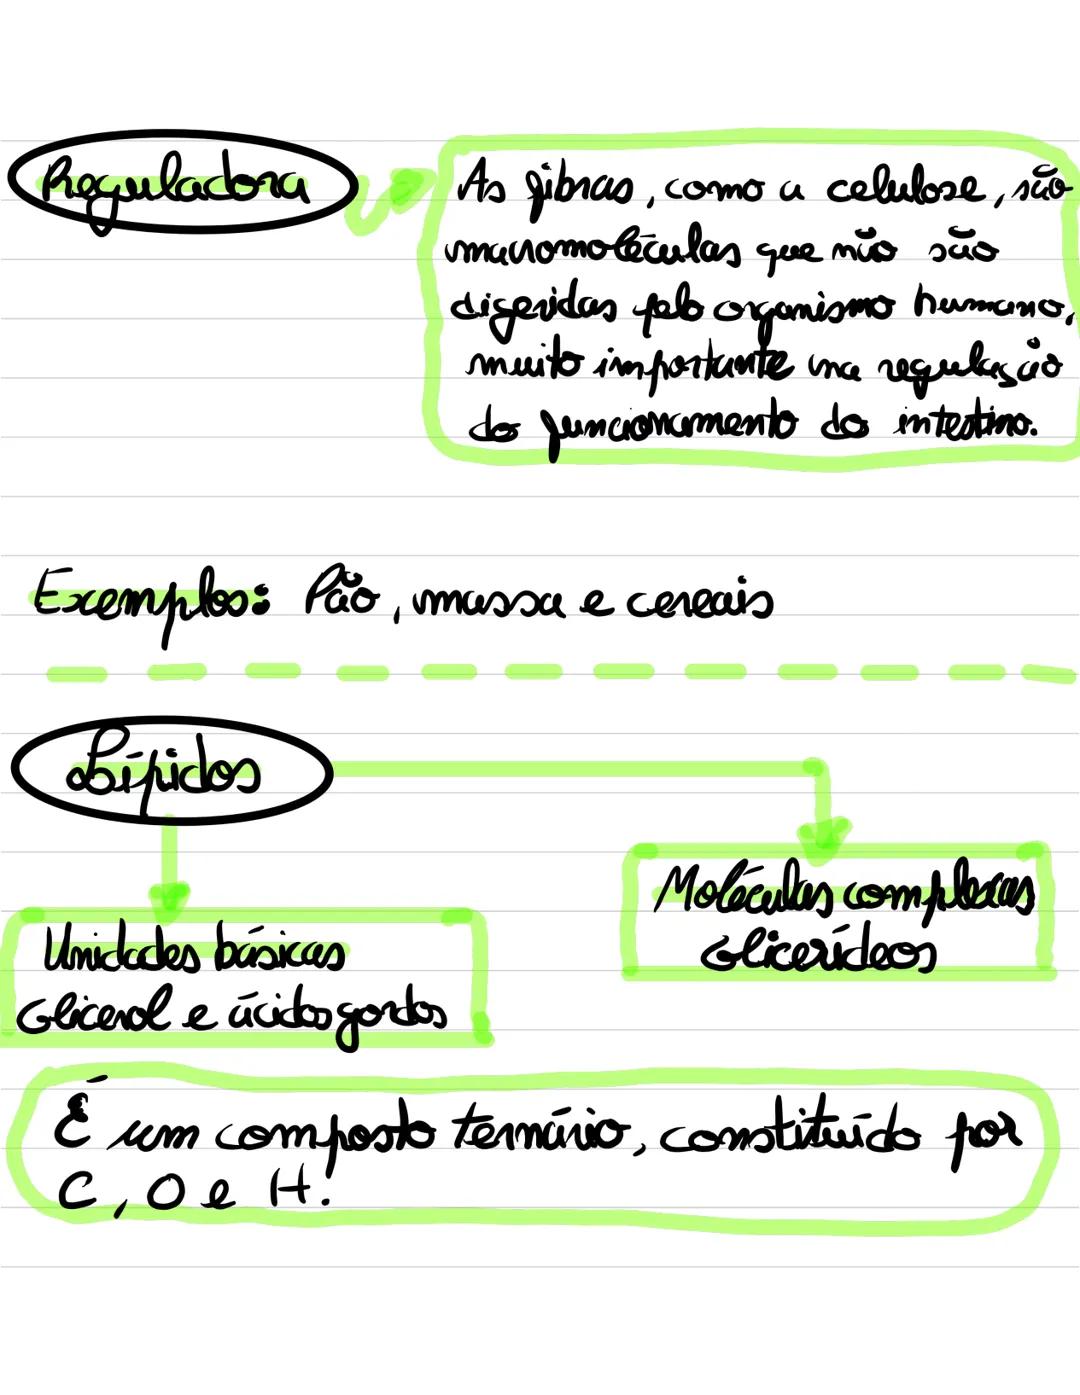 Reguladora
As fibras, como a celulose, são
macromoléculas que não são
digeridas pelo organismo humano,
muito importante na regulação
do funcionamento do intestino.
Exemplos: Pão, massa e cereais
Lípidos
Moléculas complexas
Glicerídeos
Unidades básicas
Glicerol e ácidos gordos
É um composto ternário, constituído por
C, O e H.